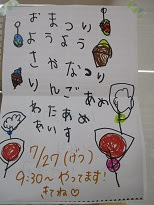 おまつり
ようよう
さかなつり
りんごあめ
わたあめ
あいす
7/27(げつ)
9:30~ やってます!
きてね♡